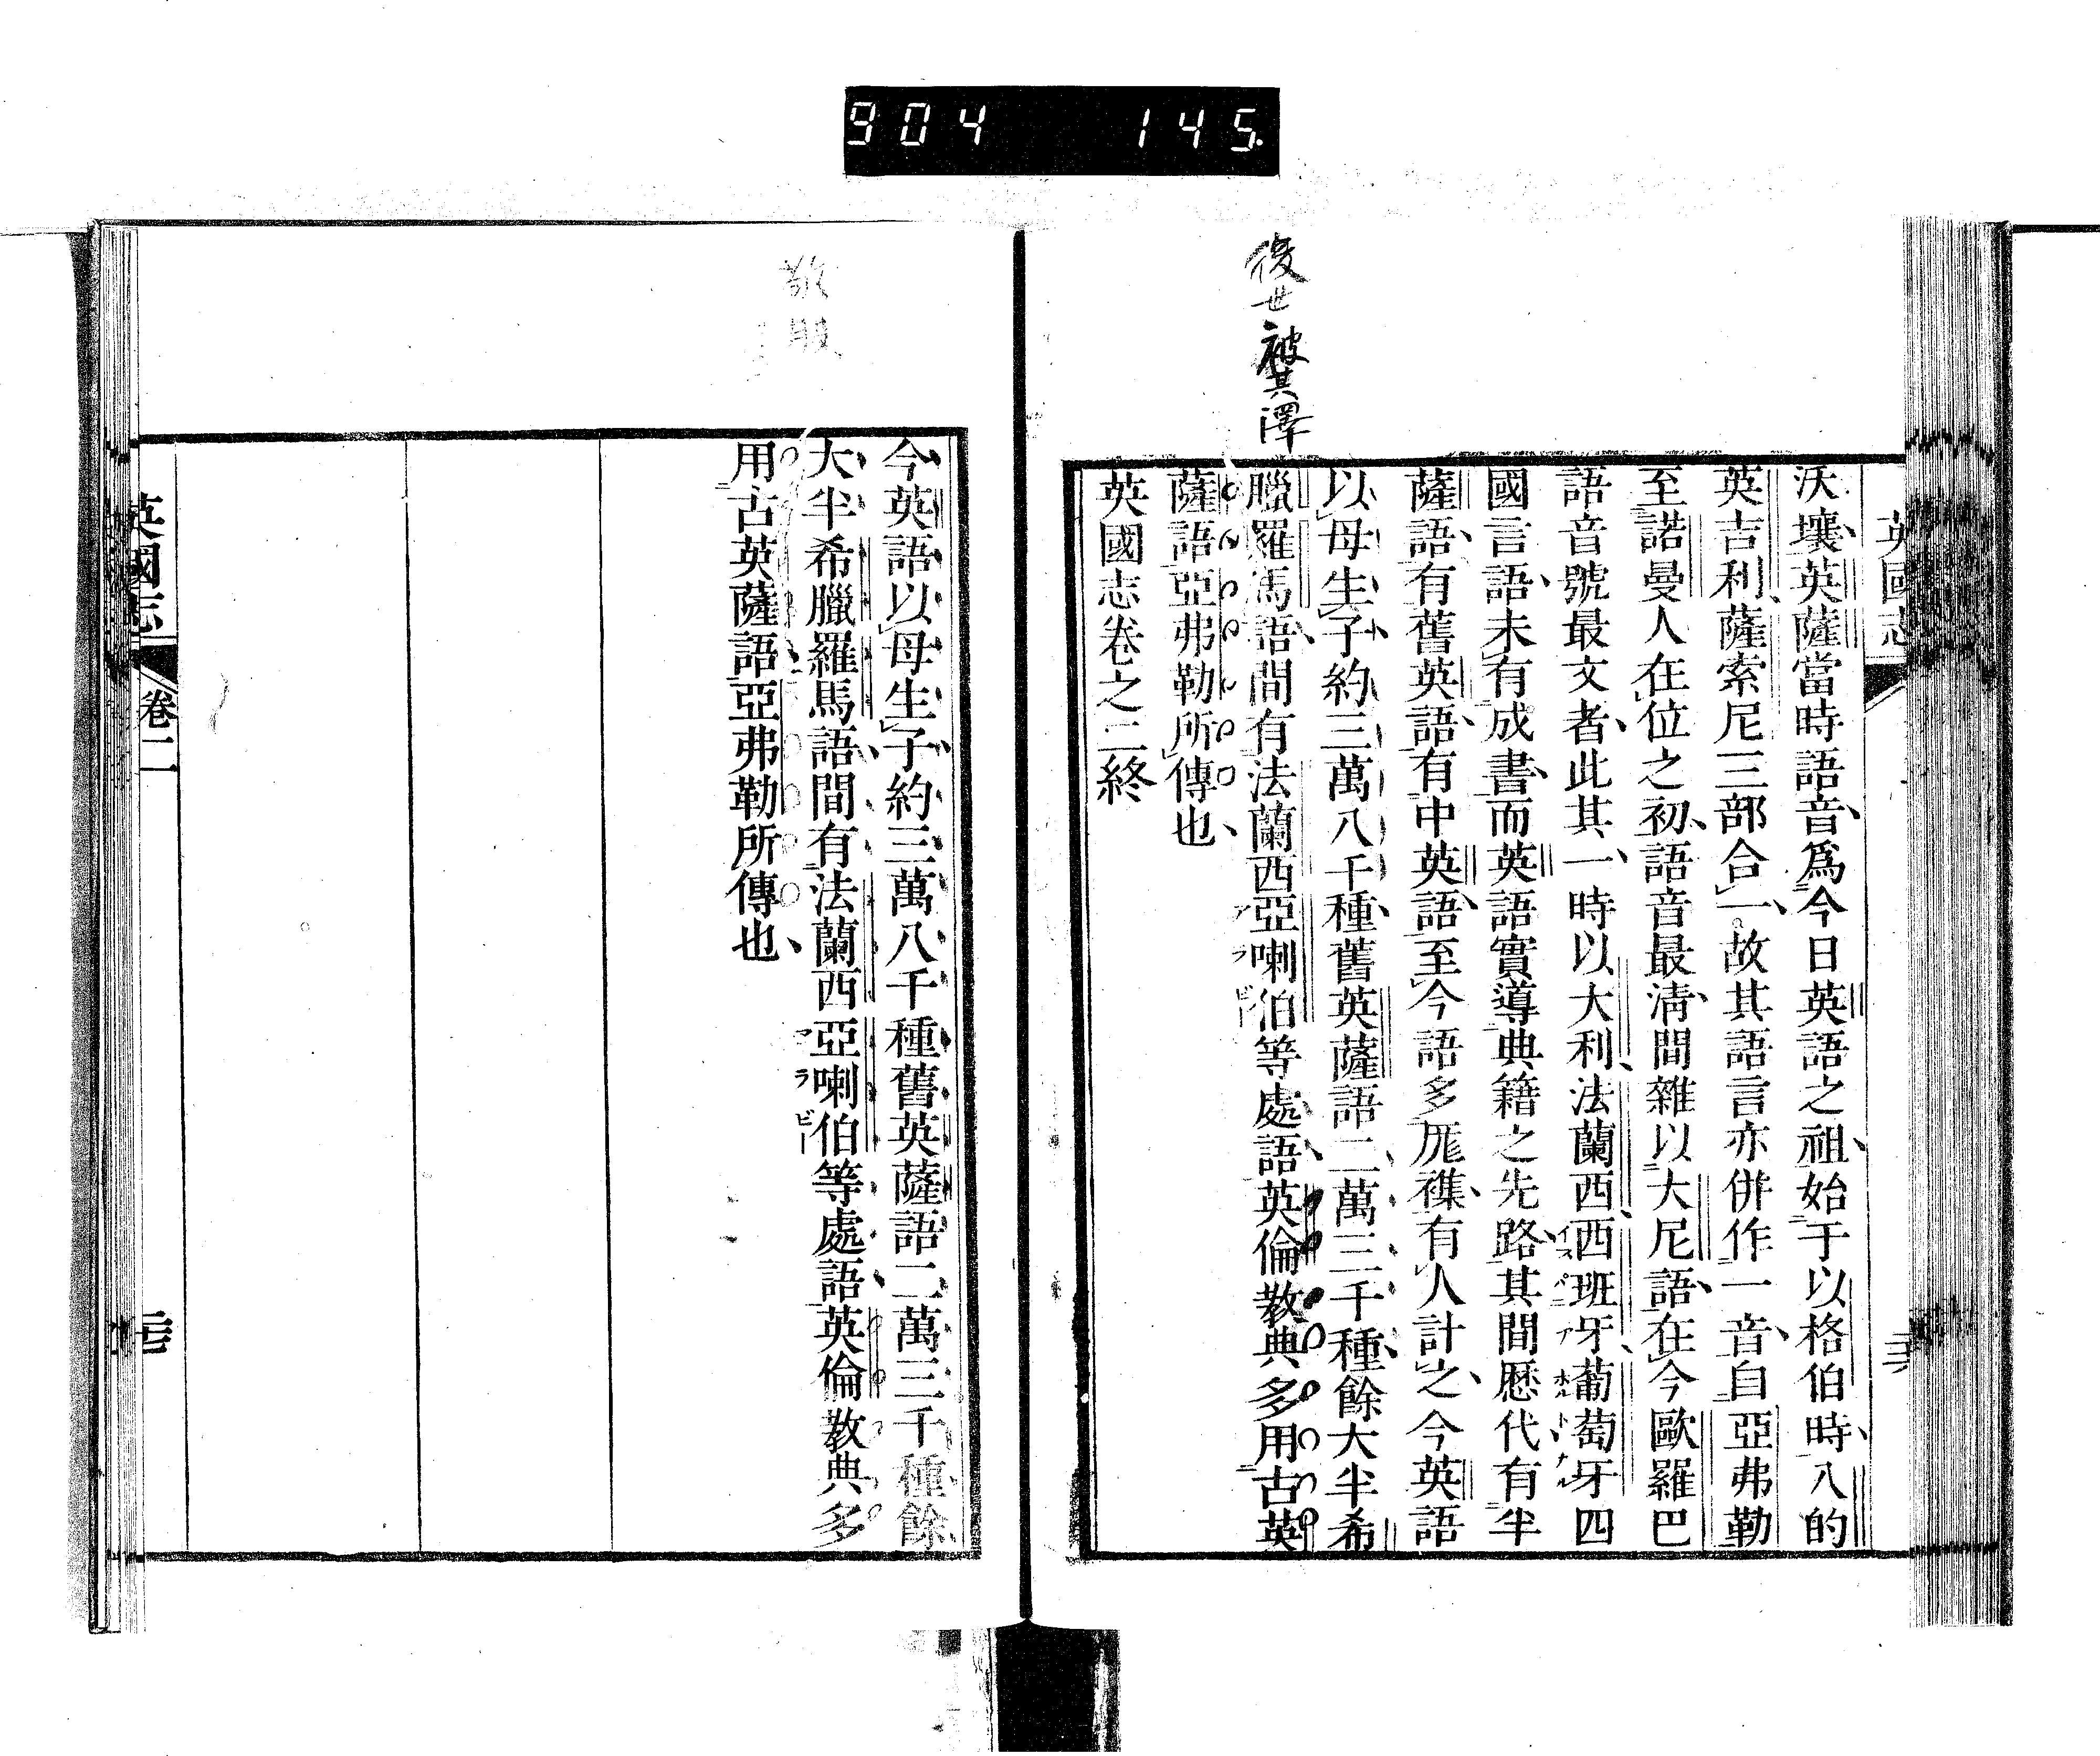 904 145
後世被其澤
英國志
沃壤英薩當時語音爲今日英語之祖始于以格伯時入的
英吉利薩索尼三部合一故其語言亦併作一音自亞弗勒
至諾曼人在位之初語音最淸間雜以大尼語在今歐羅巴
語音號最文者此其一時以大利法蘭西西班牙葡萄牙四
國言語未有成書而英語實導典籍之先路其間歷代有半
薩語有舊英語有中英語至今語多厖襍有人計之今英語
以母生子約三萬八千種舊英薩語二萬三千種餘大半希
臘羅馬語間有法蘭西亞喇伯等處語英倫敎典多用古英
薩語亞弗勒所傳也
英國志卷之二終
敬服
今英語以母生子約三萬八千種舊英薩語二萬三千種餘
大半希臘羅馬語間有法蘭西亞喇伯等處語英倫敎典多
用古英薩語亞弗勒所傳也
英國志 卷二